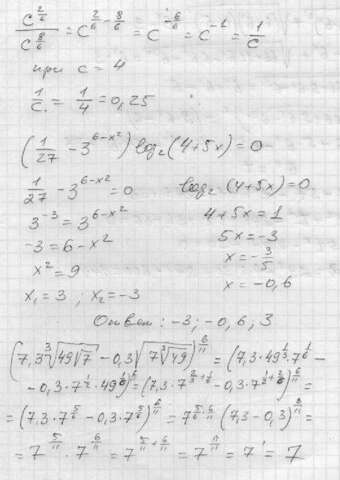 c^(2/6) / c^(8/6) = c^(2/6 - 8/6) = c^(-6/6) = c^(-1) = 1/c
при c = 4
1/c = 1/4 = 0,25
(1/27 - 3^(6-x²)) log₂(4+5x) = 0
1/27 - 3^(6-x²) = 0 log₂(4+5x) = 0
3^(-3) = 3^(6-x²) 4+5x = 1
-3 = 6-x² 5x = -3
x² = 9 x = -3/5
x₁ = 3 ; x₂ = -3 x = -0,6
Ответ: -3; -0,6; 3
(7,3 ∛(49√7) - 0,3 √(7∛49))^(6/11) = (7,3·49^(1/3)·7^(1/6) -
- 0,3·7^(1/2)·49^(1/6))^(6/11) = (7,3·7^(2/3+1/6) - 0,3·7^(1/2+2/6))^(6/11) =
= (7,3·7^(5/6) - 0,3·7^(5/6))^(6/11) = 7^(5/6·6/11)·(7,3-0,3)^(6/11) =
= 7^(5/11) · 7^(6/11) = 7^(5/11+6/11) = 7^(11/11) = 7^1 = 7